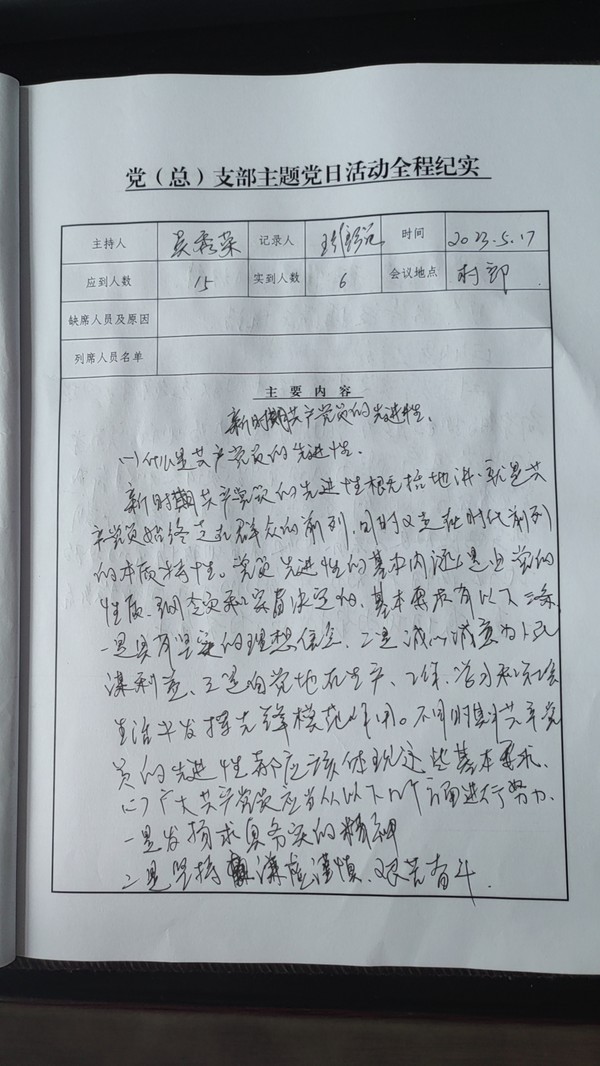 党（总）支部主题党日活动全程纪实
主持人 吴秀荣 记录人 时间 2023.5.17
应到人数 15 实到人数 6 会议地点 村部
缺席人员及原因
列席人员名单
主要内容
新时期共产党员的先进性.
(一)什么是共产党员的先进性.
新时期共产党员的先进性概括地讲.就是共
产党员始终走在群众的前列,同时又走在时代前列
的本质特性。党员先进性的基本内涵是由党的
性质、纲领和宗旨决定的.基本要求有以下三条
一是具有坚定的理想信念、二是诚心诚意为人民
谋利益、三是响亮地在生产、工作、学习和社会
生活中发挥先锋模范作用。不同时期共产党
员的先进性都应该体现这些基本要求.
(二)广大共产党员应当从以下几个方面进行努力.
一是发扬求真务实的精神
二是坚持谦虚谨慎、艰苦奋斗.